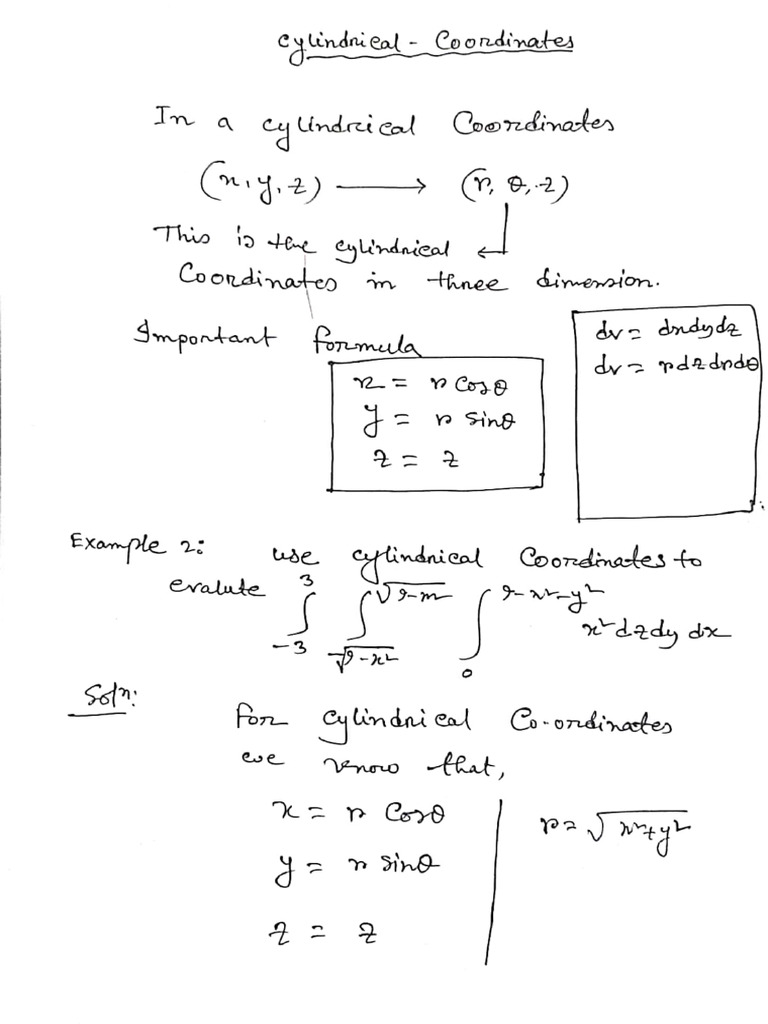 Cylindrical - Coordinates
In a cylindrical Coordinates
(x, y, z) ⟶ (r, θ, z)
This is the cylindrical ↵
Coordinates in three dimension.
Important formula
dv = dxdydz
dv = rdzdrdθ
x = r Cosθ
y = r sinθ
z = z
Example 2: use cylindrical Coordinates to
evalute ∫_{-3}^{3} ∫_{-√9-x²}^{√9-x²} ∫_{0}^{9-x²-y²} x² dzdy dx
Solⁿ:
For cylindrical Co-ordinates
we know that,
x = r Cosθ
y = r sinθ
z = z
r = √x²+y²